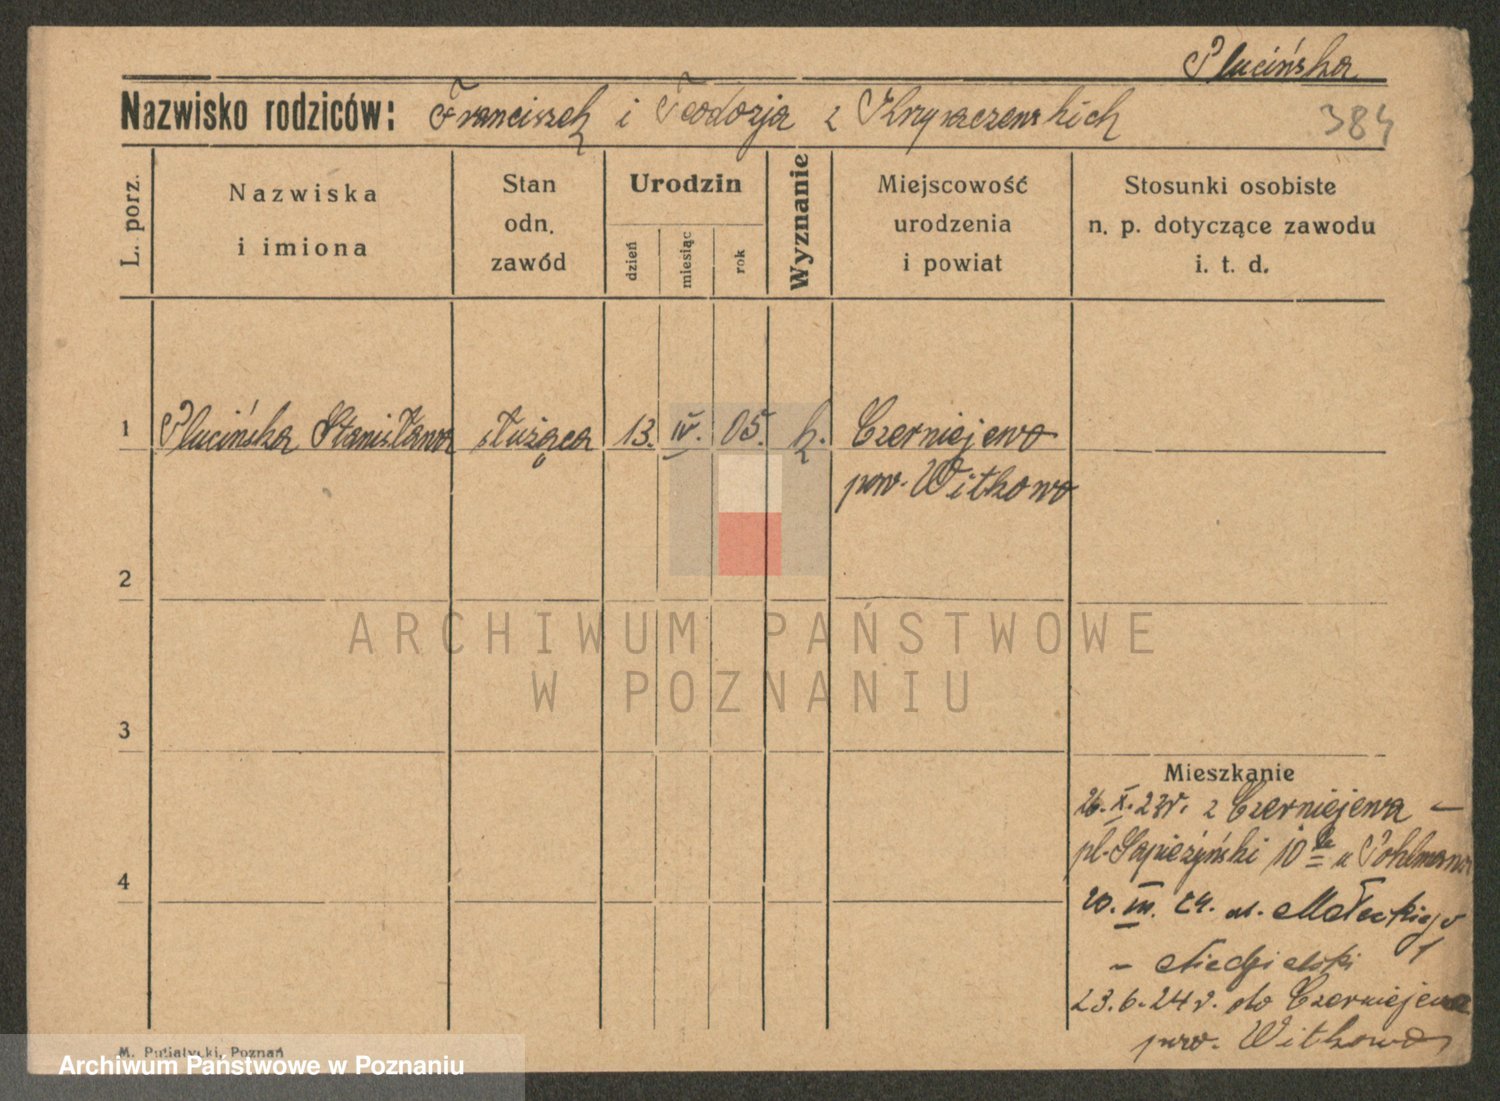 Plucińska
Nazwisko rodziców: Franciszek i Teodozja z
384
L. porz.
Nazwiska
i imiona
Stan
odn.
zawód
Urodzin
dzień
miesiąc
rok
Wyznanie
Miejscowość
urodzenia
i powiat
Stosunki osobiste
n. p. dotyczące zawodu
i. t. d.
1 Plucińska Stanisława służąca 13. IV. 05. k. Czerniejewo
pow. Witkowo
2
ARCHIWUM PAŃSTWOWE
W POZNANIU
3
Mieszkanie
26. X. 23r. z Czerniejewa –
pl. Sapieżyński 10 u Pohlmana
4
20. III. 24. ul. Małeckiego
– Niedzielski
23.6.24r. do Czerniejewa
pow. Witkowo
M. Putiatycki, Poznań
Archiwum Państwowe w Poznaniu